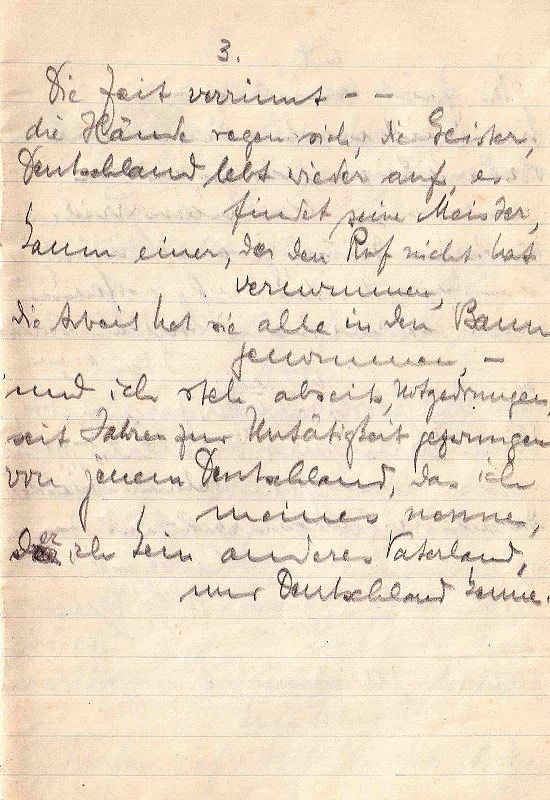 3.
Die Zeit verrinnt - -
die Hände regen sich, die Geister,
Deutschland lebt wieder auf, es
findet seine Meister,
kaum einer, der den Ruf nicht hat
vernommen,
die Arbeit hat sie alle in den Bann
genommen, -
und ich steh abseits, notgedrungen,
seit Jahren zur Untätigkeit gezwungen
von jenem Deutschland, das ich
meines nenne,
der ich kein anderes Vaterland,
nur Deutschland kenne.